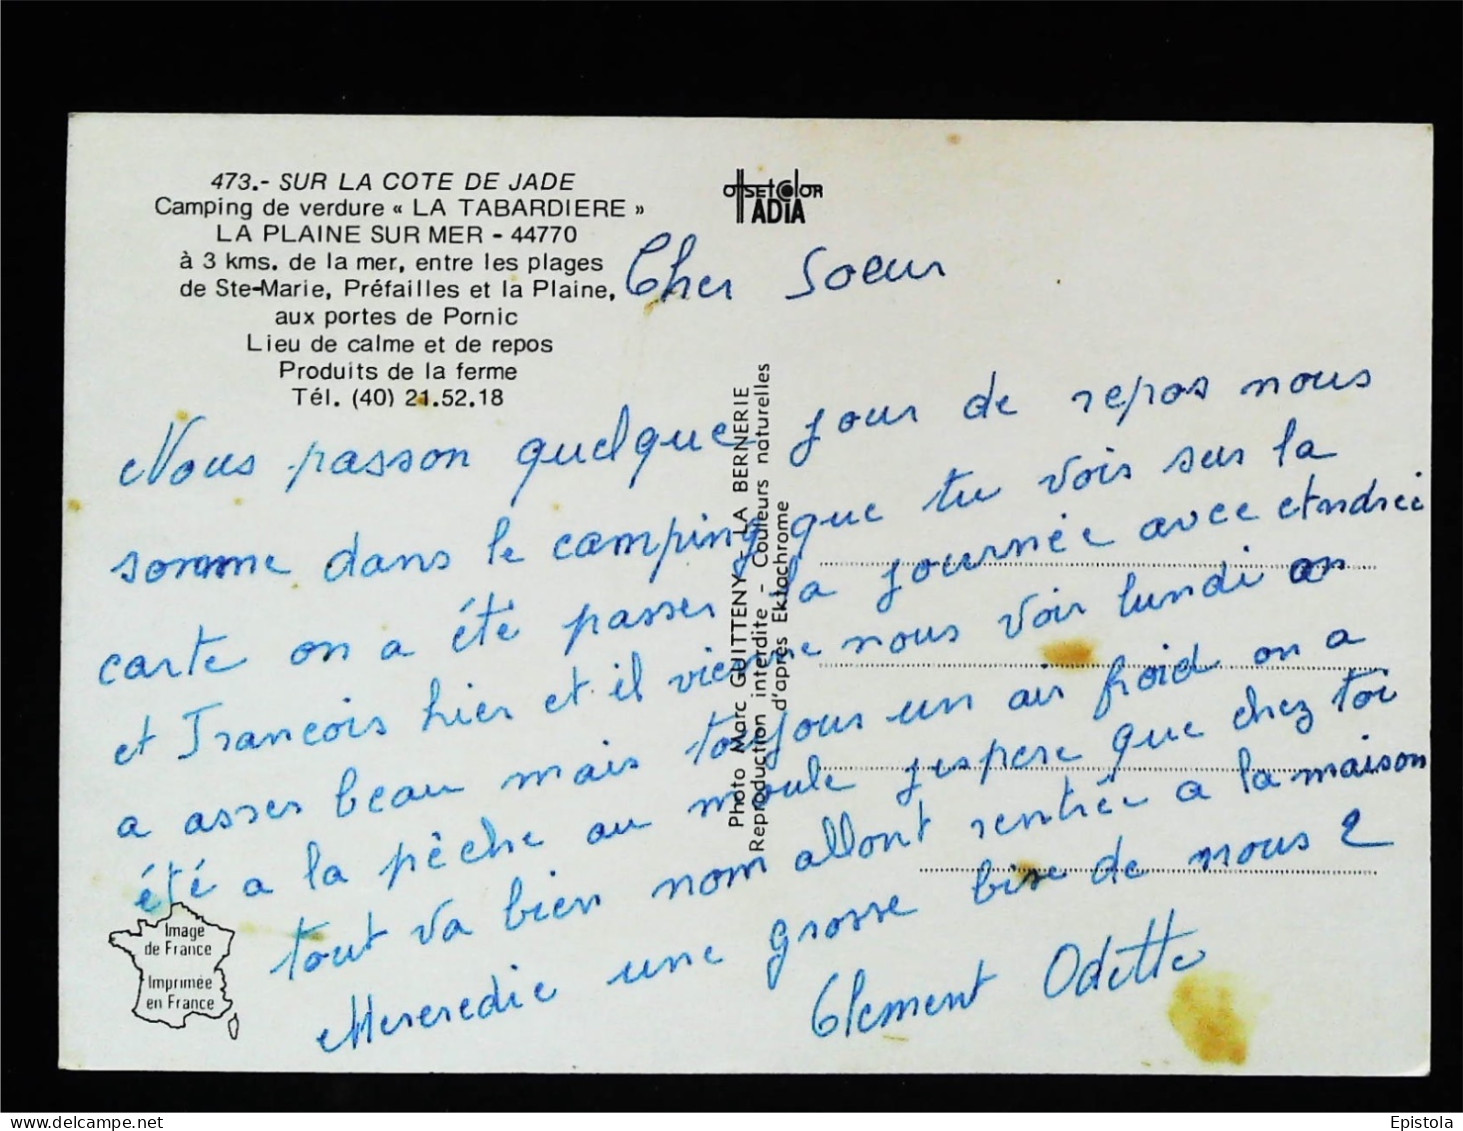 473.- SUR LA COTE DE JADE
Camping de verdure « LA TABARDIERE »
LA PLAINE SUR MER - 44770
à 3 kms. de la mer, entre les plages
de Ste-Marie, Préfailles et la Plaine,
aux portes de Pornic
Lieu de calme et de repos
Produits de la ferme
Tél. (40) 21.52.18
OffSET COlOR
ADIA
Cher Soeur
Nous passon quelque jour de repos nous
somme dans le camping que tu vois sur la
carte on a été passer la journée avec Andrée
et Francois hier et il vienne nous voir lundi on
a asser beau mais toujous un air froid on a
été a la pèche au moule jespere que chez toi
tout va bien nom allont rentrée a la maison
Mereredie une grosse bise de nous 2
Clement Odette
Photo Marc GUITTENY - LA BERNERIE
Reproduction interdite - Couleurs naturelles
d'après Ektachrome
Image
de France
Imprimée
en France
www.delcampe.net
Epistola